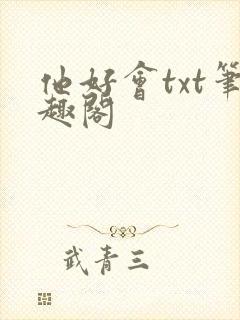 他好會txt筆
趣閣
武青三